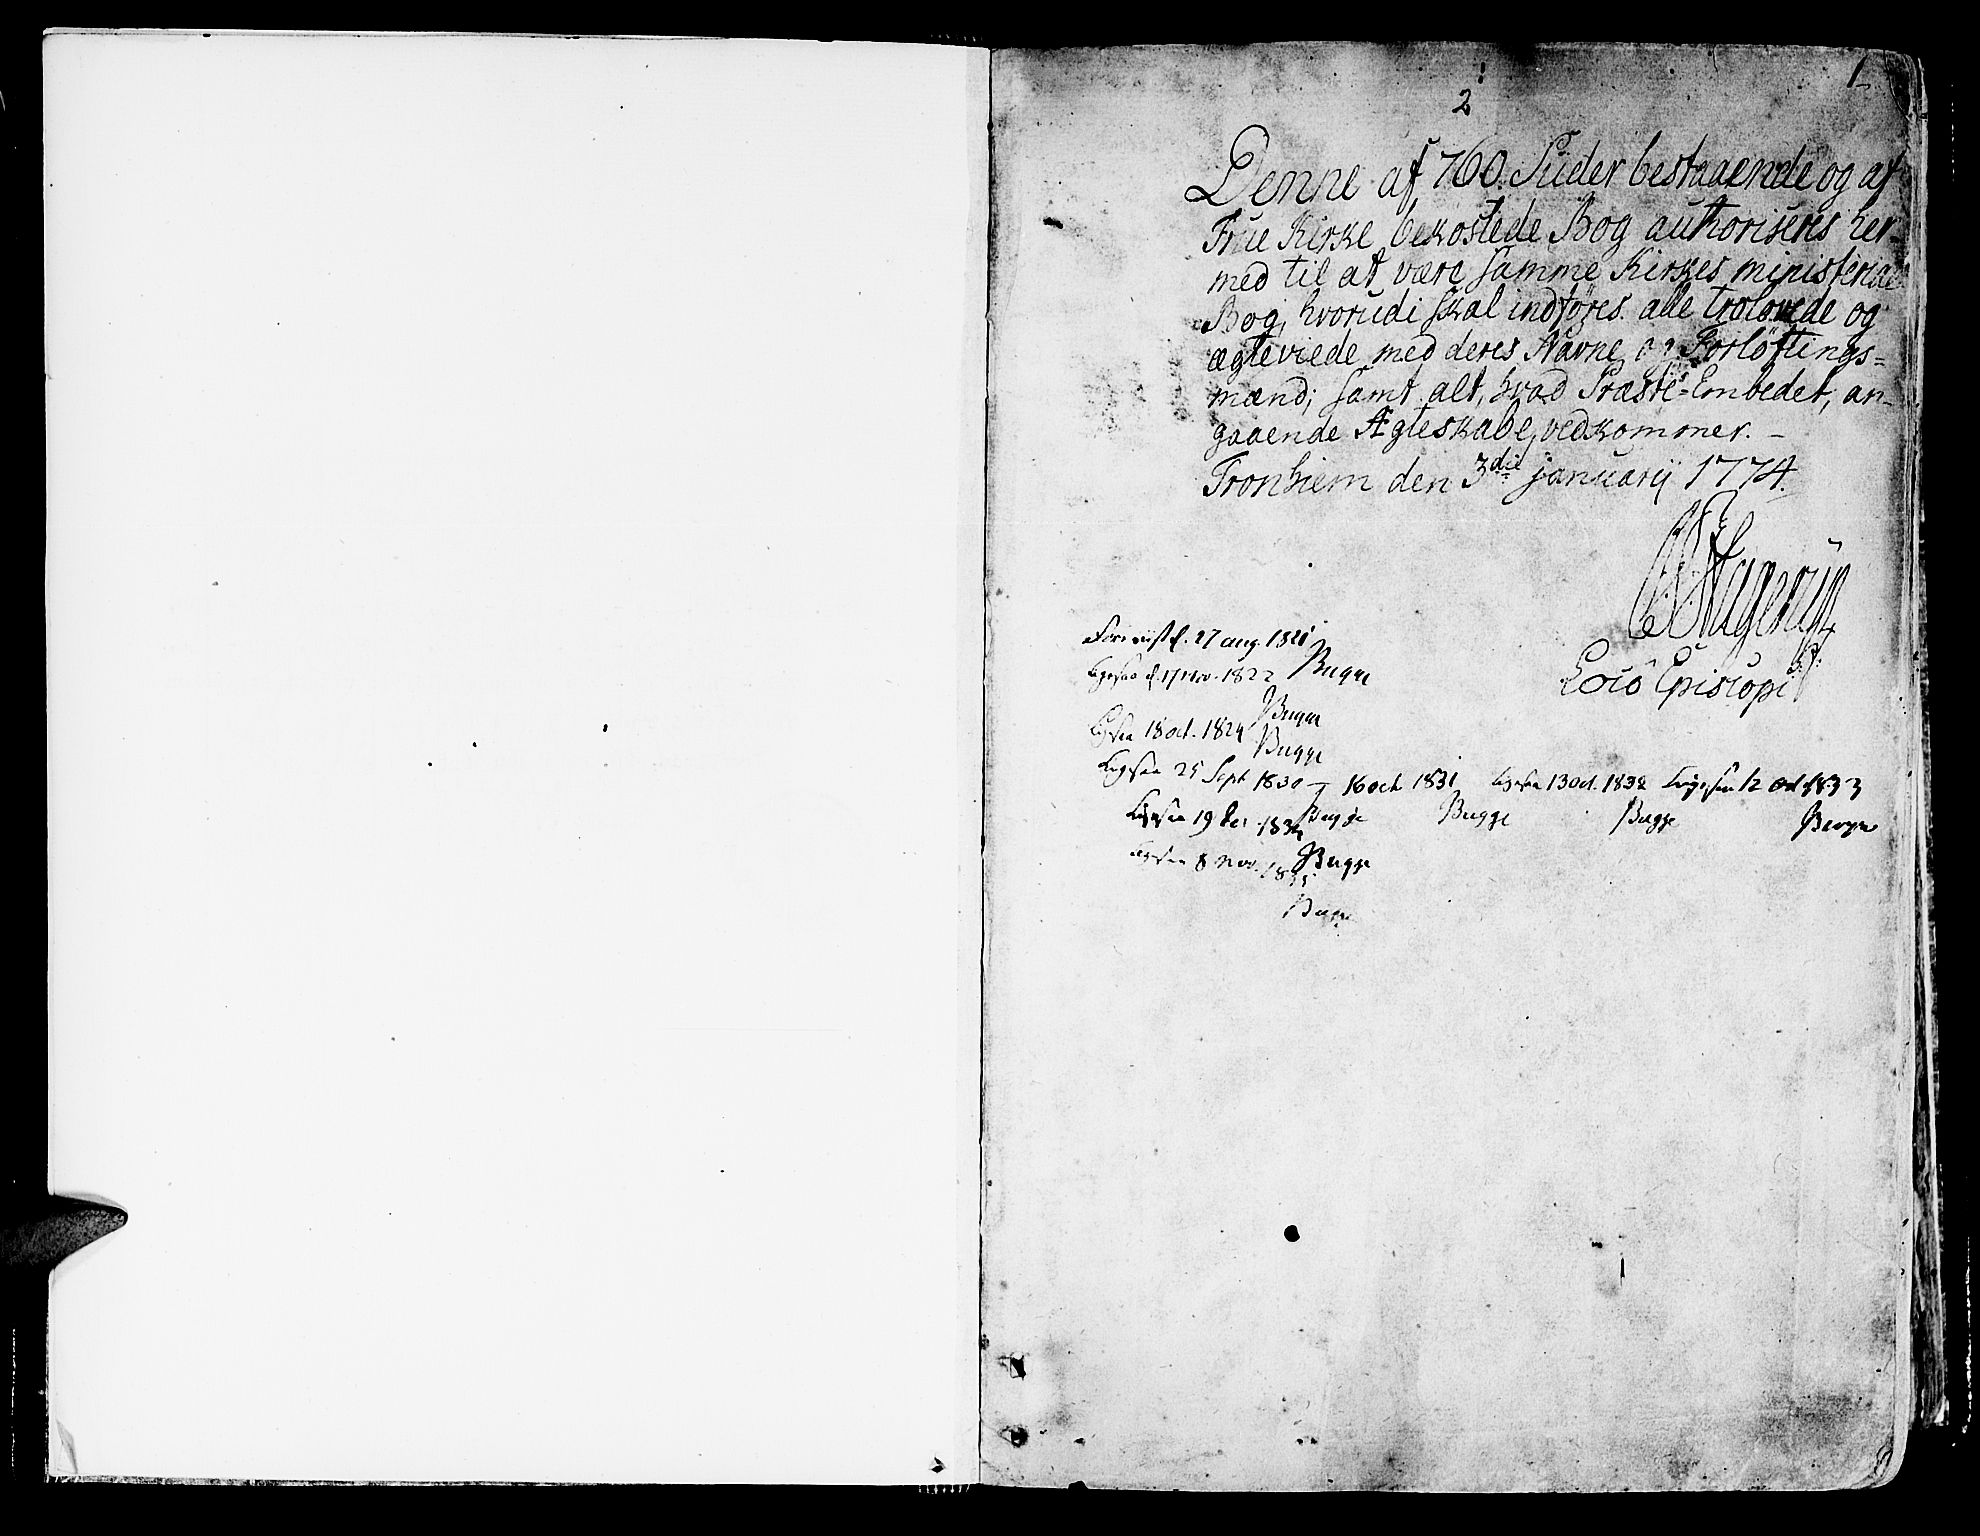 1
2
Denne af 760. Siider bestaaende og af
Frue Kirke bekostede Bog authoriseres her-
med til at være samme Kirkes ministerial
Bog, hvorudi skal indføres alle trolovede og
ægteviede med deres Navne og Forløftings=
mænd; samt alt, hvad Præste-Embedet, an-
gaaende Ægteskabe, vedkommer. -
Tronhiem den 3die januarij 1774.
Loco Episcopi
Foreviist d. 27 aug. 1821
Bugge
Ligesaa d. 17 Nov. 1822
Bugge
Ligesaa 18 oct. 1824
Bugge
Ligesaa 25 Sept 1830 - 16 och 1831 Ligesaa 13 Oct. 1832 Ligesaa 12 Oct 1833
Bugge Bugge Bugge Bugge
Ligesaa 19 1834
Bugge
Ligesaa 8 Nov. 1835
Bugge